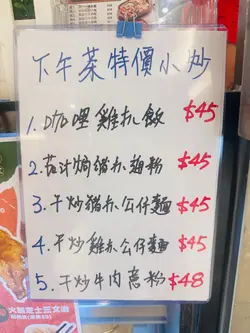 下午茶特價小炒
1. 咖哩雞扒飯 $45
2. 茄汁焗猪扒翅粉 $45
3. 干炒猪扒公仔麵 $45
4. 干炒雞扒公仔麵 $45
5. 干炒牛肉意粉 $48
火腿芝士三文治